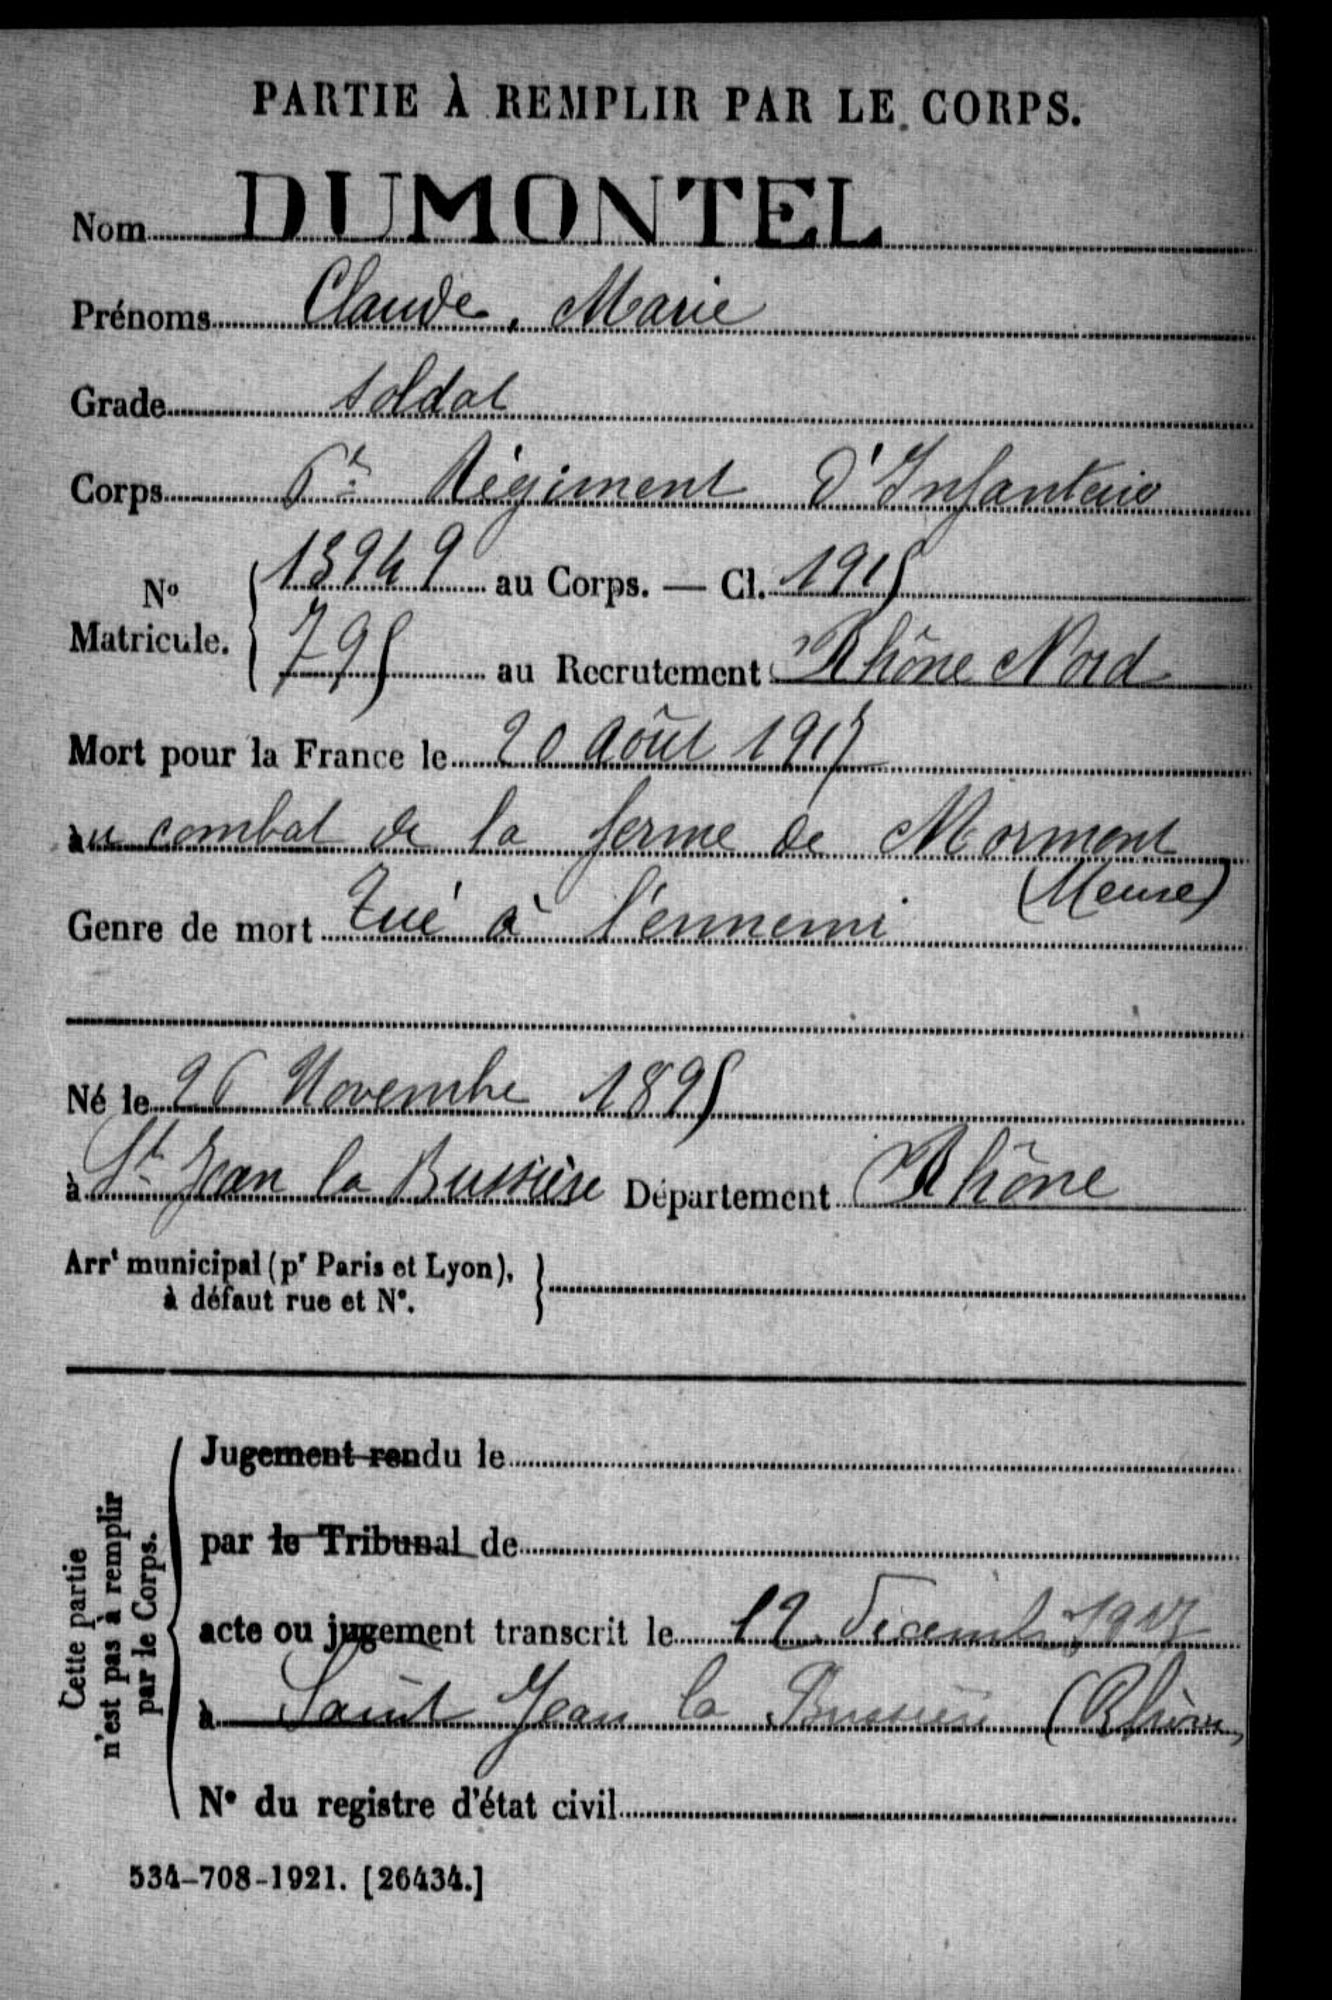 PARTIE À REMPLIR PAR LE CORPS.
Nom DUMONTEL
Prénoms Claude, Marie
Grade soldat
Corps 6e Régiment d'Infanterie
No Matricule. 13949 au Corps. — Cl. 1915
795 au Recrutement Rhône Nord
Mort pour la France le 20 Août 1917
au combat de la ferme de Mormont
(Meuse)
Genre de mort Tué à l'ennemi
Né le 26 Novembre 1895
à St Jean la Bussière Département Rhône
Arrt municipal (pr Paris et Lyon),
à défaut rue et No.
Cette partie
n'est pas à remplir
par le Corps.
Jugement rendu le
par le Tribunal de
acte ou jugement transcrit le 12 décembre 1917
à Saint Jean la Bussière (Rhône)
No du registre d'état civil
534-708-1921. [26434.]